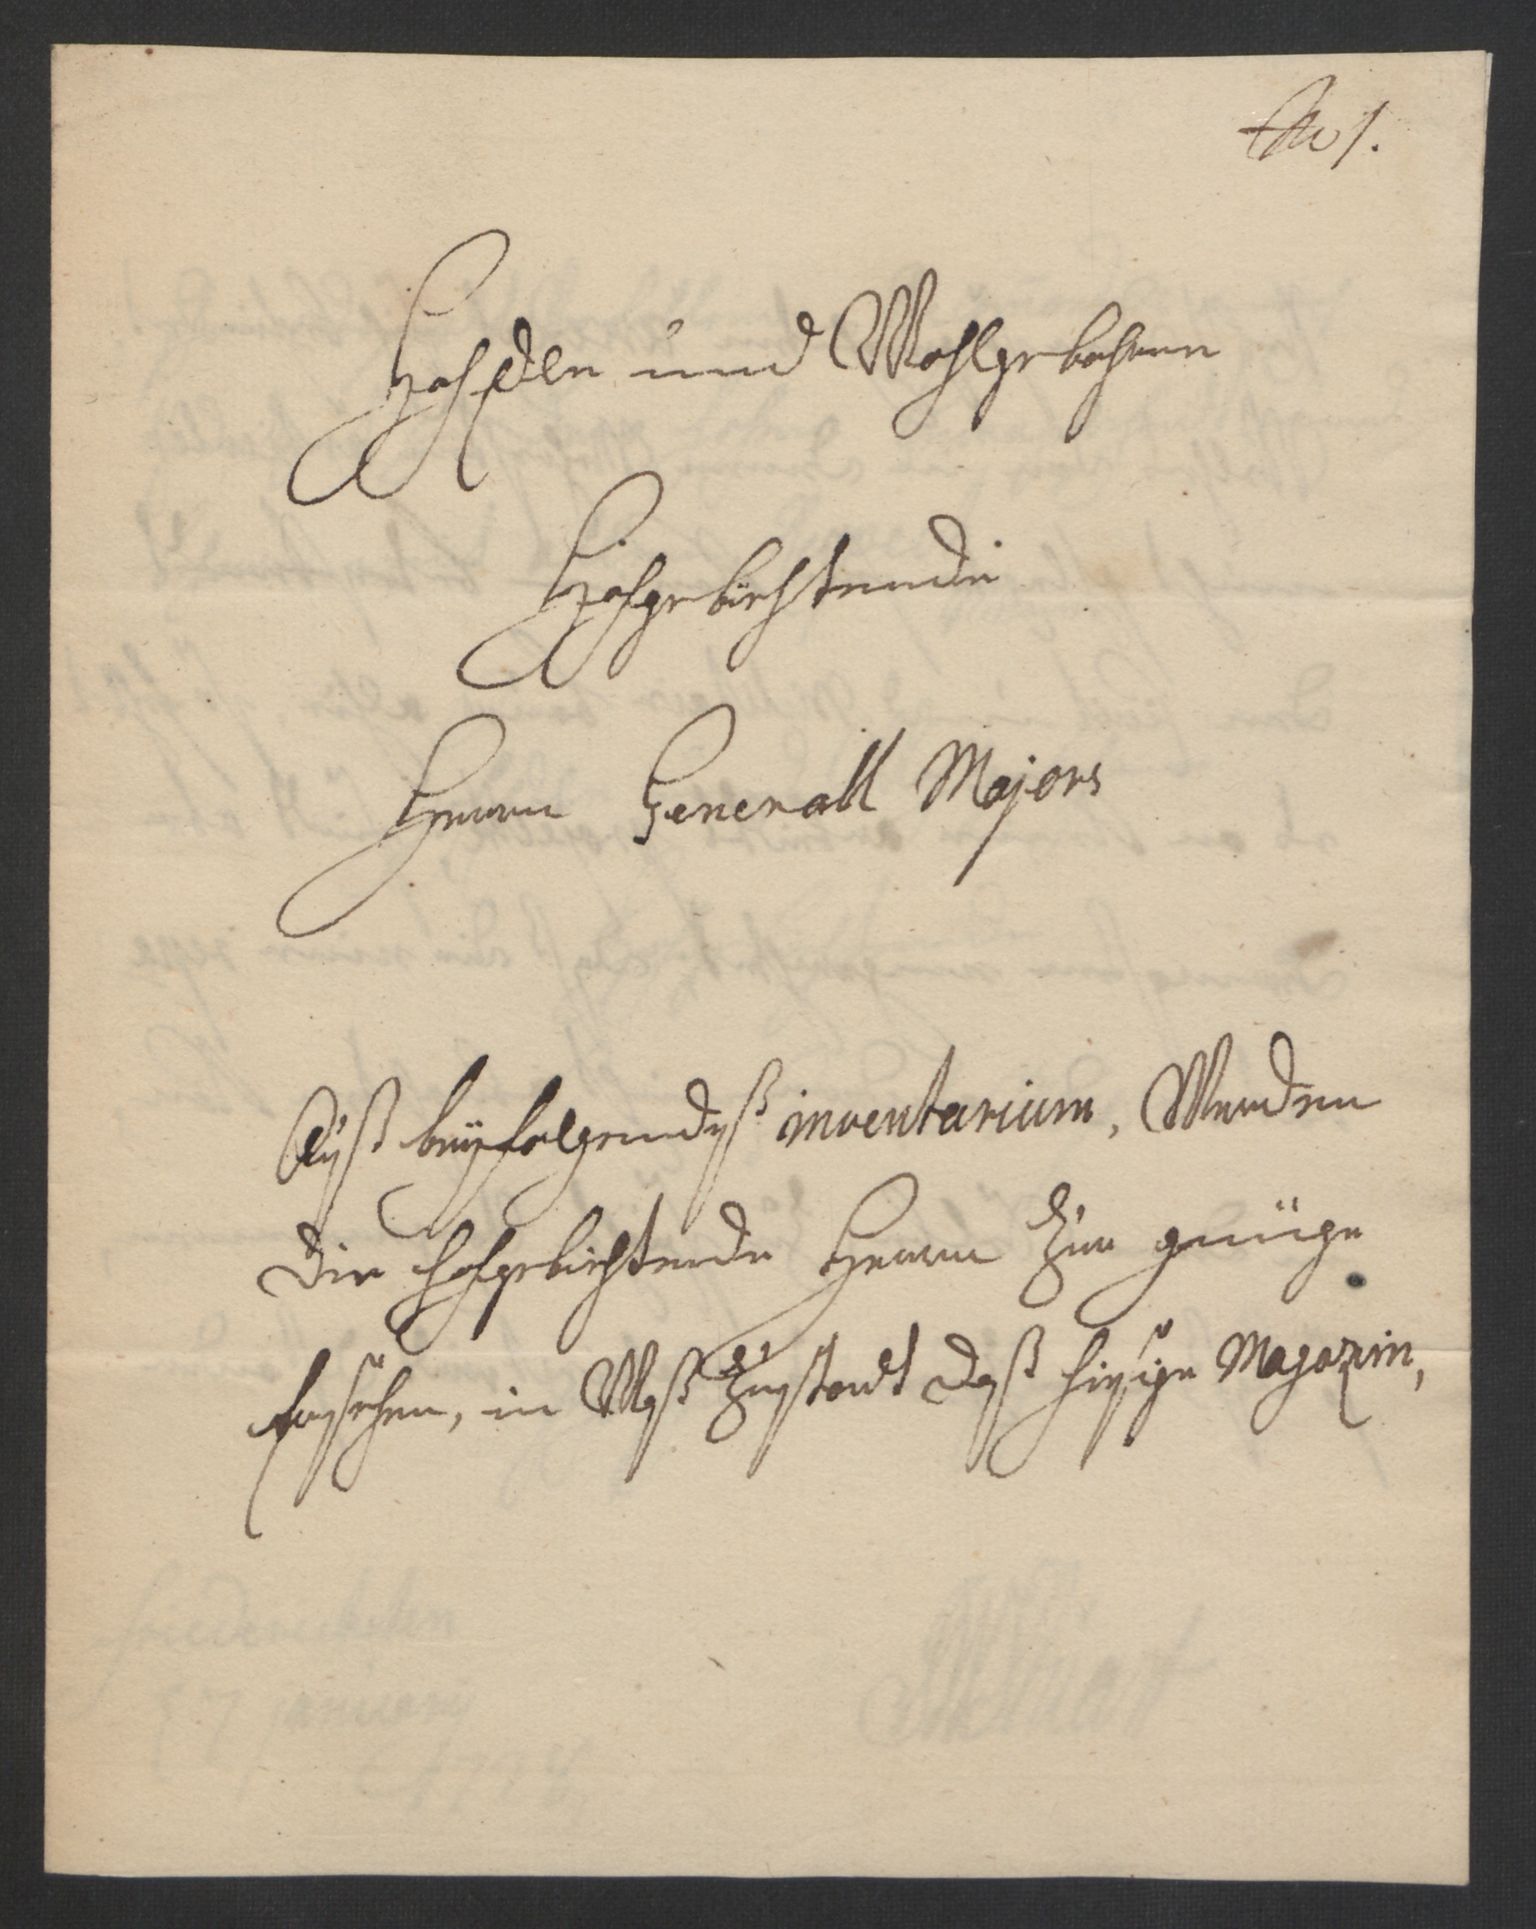 No 1.
HochEdle und Wohlgebohrne
Hochgebiehtende
Herren Generall Majors
Auß beÿfolgendeß inventarium, Werden
die hochgebiehtende Herren zur genüge
ersehen, in Waß Zustandt daß hiesige Magazin,